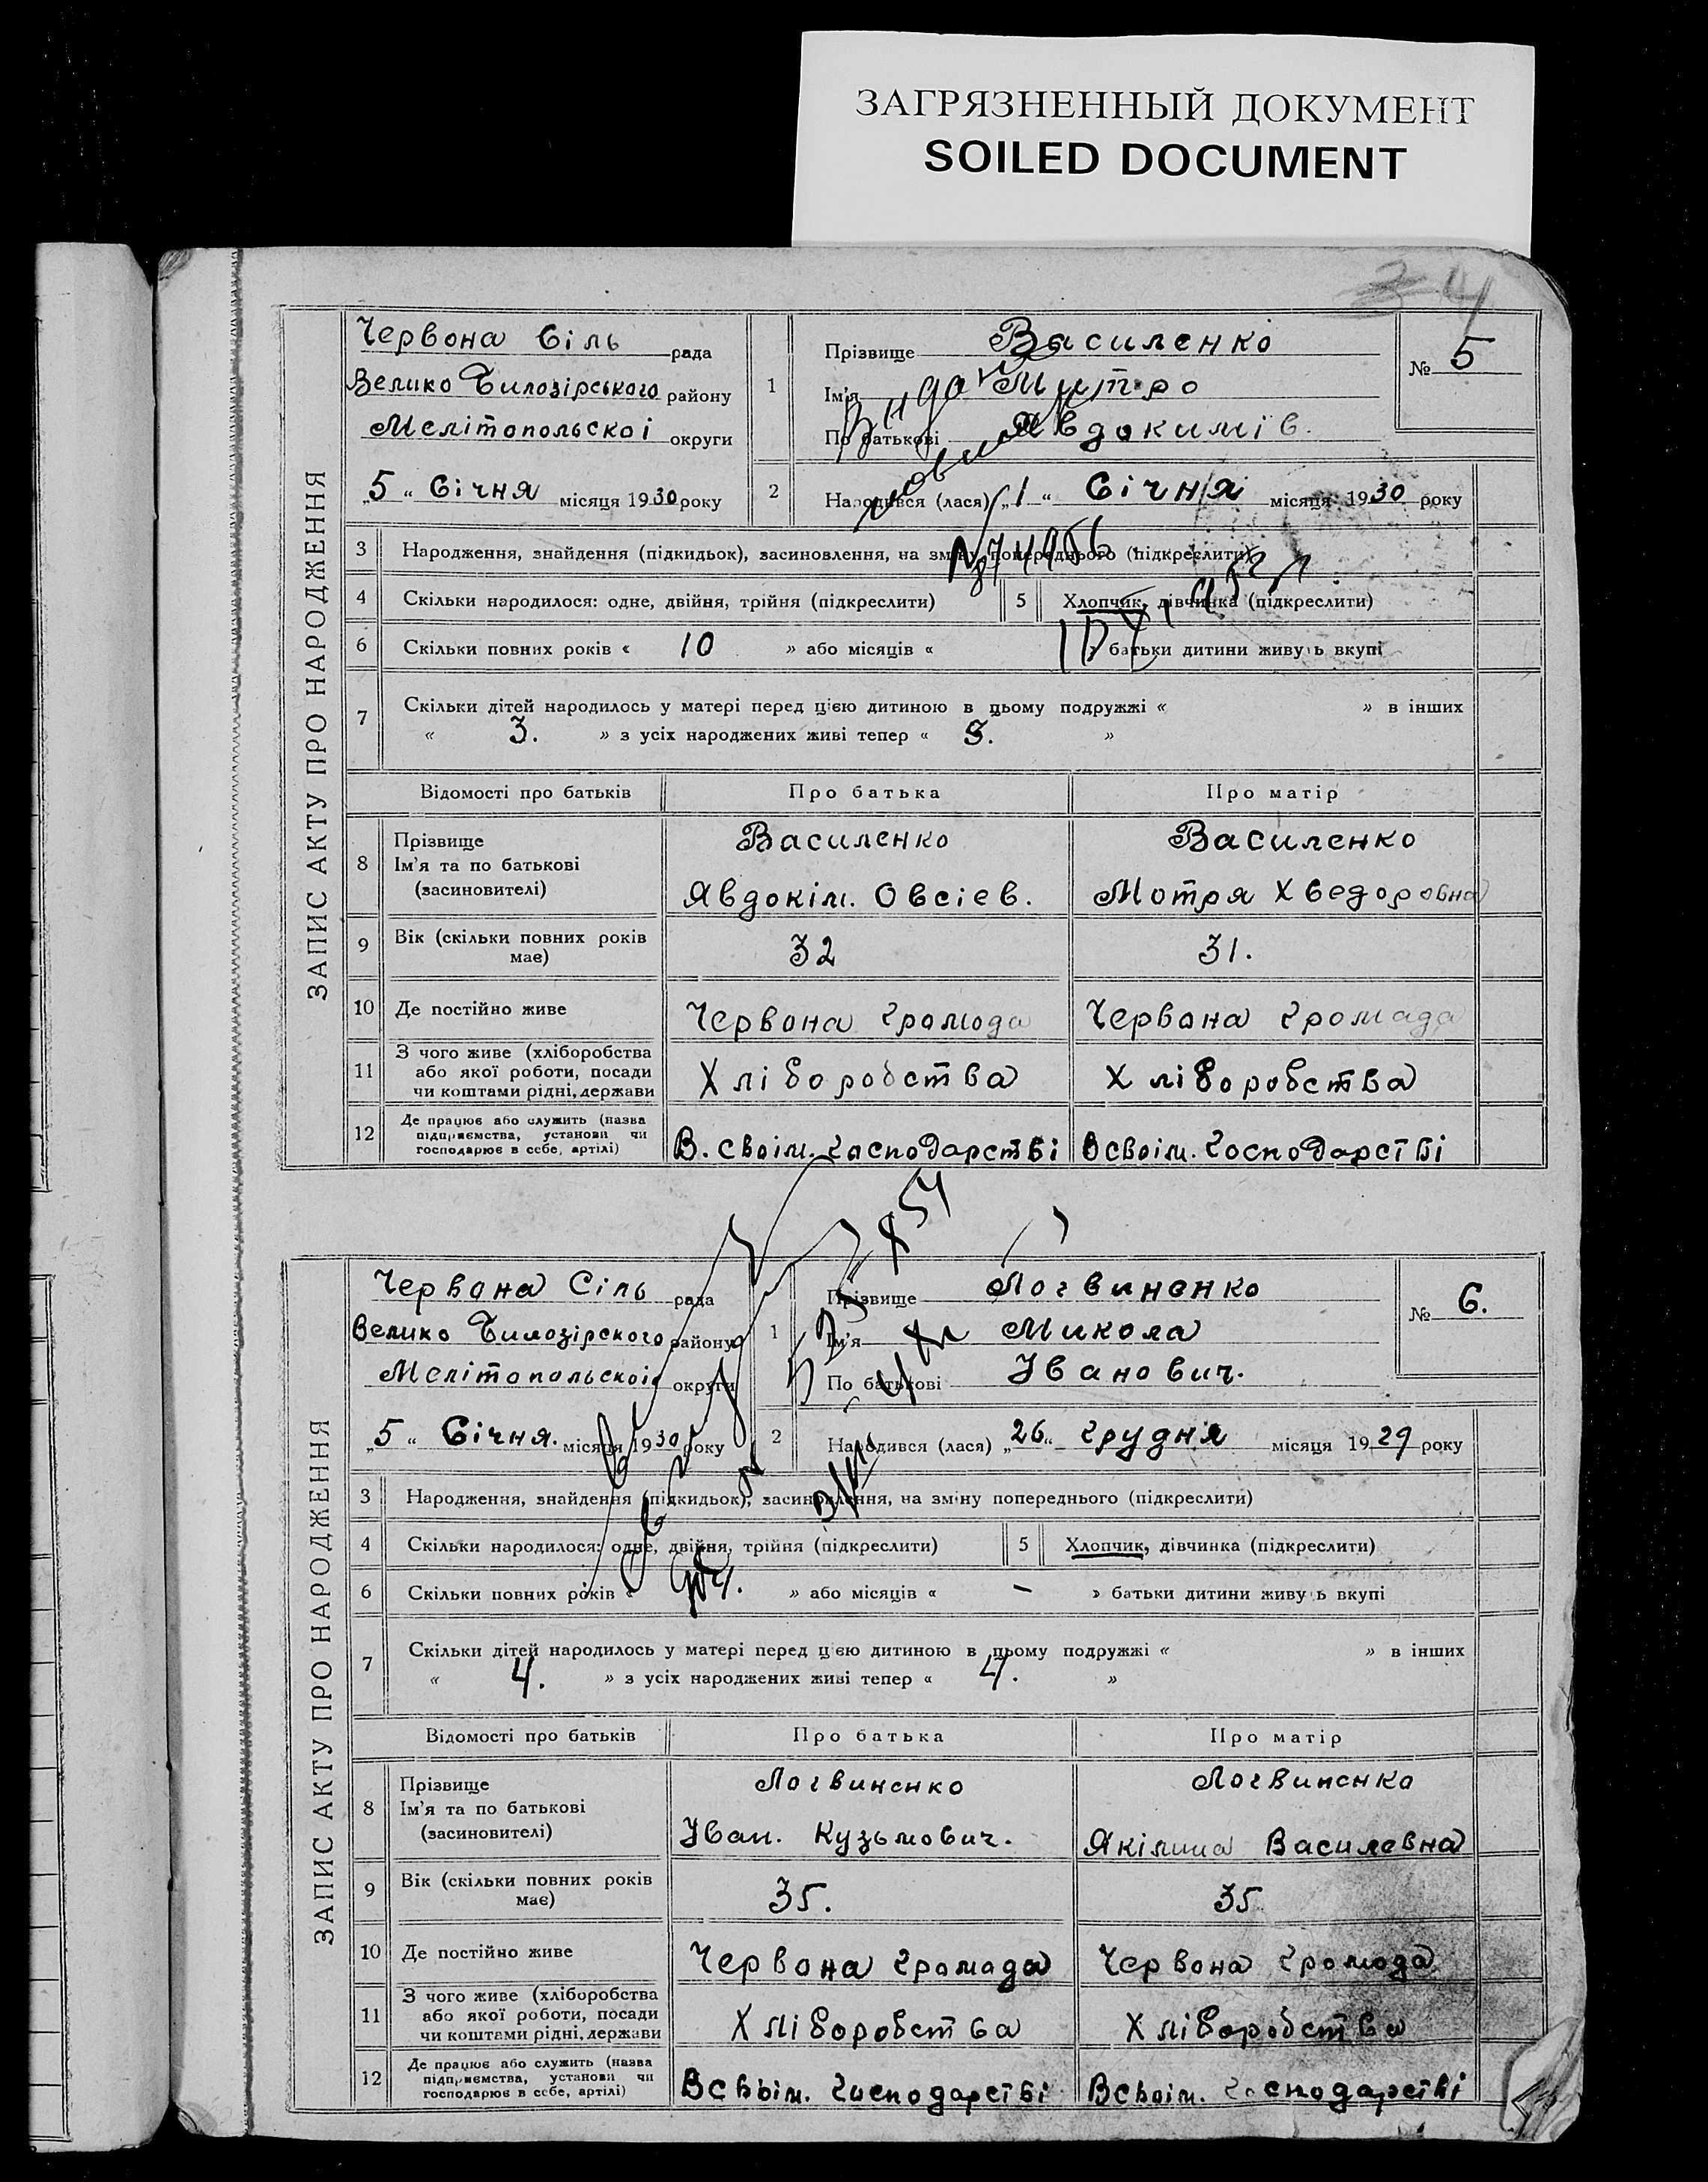 ЗАГРЯЗНЕННЫЙ ДОКУМЕНТ
SOILED DOCUMENT
4
ЗАПИС АКТУ ПРО НАРОДЖЕННЯ
Червона Сіль рада
Велико Билозірського району
Мелітопольскоі округи
„5“ Січня місяця 1930 року
1
Прізвище Василенко
Ім'я Митро
По батькові Явдокимів.
№ 5
2 Народився (лася) „1“ Січня місяця 1930 року
3 Народження, знайдення (підкидьок), засиновлення, на зміну попереднього (підкреслити)
4 Скільки народилося: одне, двійня, трійня (підкреслити) 5 Хлопчик, дівчинка (підкреслити)
6 Скільки повних років « 10 » або місяців « » батьки дитини живуть вкупі
7 Скільки дітей народилось у матері перед цією дитиною в цьому подружжі « » в інших
« 3. » з усіх народжених живі тепер « 3. »
Відомості про батьків Про батька Про матір
8 Прізвище
Ім'я та по батькові
(засиновителі)
Василенко
Явдокім. Овсіев.
Василенко
Мотря Хведоровна
9 Вік (скільки повних років має) 32 31.
10 Де постійно живе Червона громода Червона громада
11 З чого живе (хліборобства
або якої роботи, посади
чи коштами рідні, держави
Хліборобства Хліборобства
12 Де працює або служить (назва
підприємства, установи чи
господарює в себе, артілі)
В. своім. господарстві Всвоім. господарстві
ЗАПИС АКТУ ПРО НАРОДЖЕННЯ
Червона Сіль рада
Велико Билозірского району
Мелітопольскоі округи
„5“ Січня. місяця 1930 року
1
Прізвище Логвиненко
Ім'я Микола
По батькові Іванович.
№ 6.
2 Народився (лася) „26“ грудня місяця 1929 року
3 Народження, знайдення (підкидьок), засиновлення, на зміну попереднього (підкреслити)
4 Скільки народилося: одне, двійня, трійня (підкреслити) 5 Хлопчик, дівчинка (підкреслити)
6 Скільки повних років « » або місяців « – » батьки дитини живуть вкупі
7 Скільки дітей народилось у матері перед цією дитиною в цьому подружжі « » в інших
« 4. » з усіх народжених живі тепер « 4. »
Відомості про батьків Про батька Про матір
8 Прізвище
Ім'я та по батькові
(засиновителі)
Логвиненко
Іван. Кузьмович.
Логвиненко
Якілина Василевна
9 Вік (скільки повних років має) 35. 35
10 Де постійно живе Червона громада Червона громода
11 З чого живе (хліборобства
або якої роботи, посади
чи коштами рідні, держави
Хліборобства Хліборобства
12 Де працює або служить (назва
підприємства, установи чи
господарює в себе, артілі)
Всвоім. господарстві Всвоім. господарстві